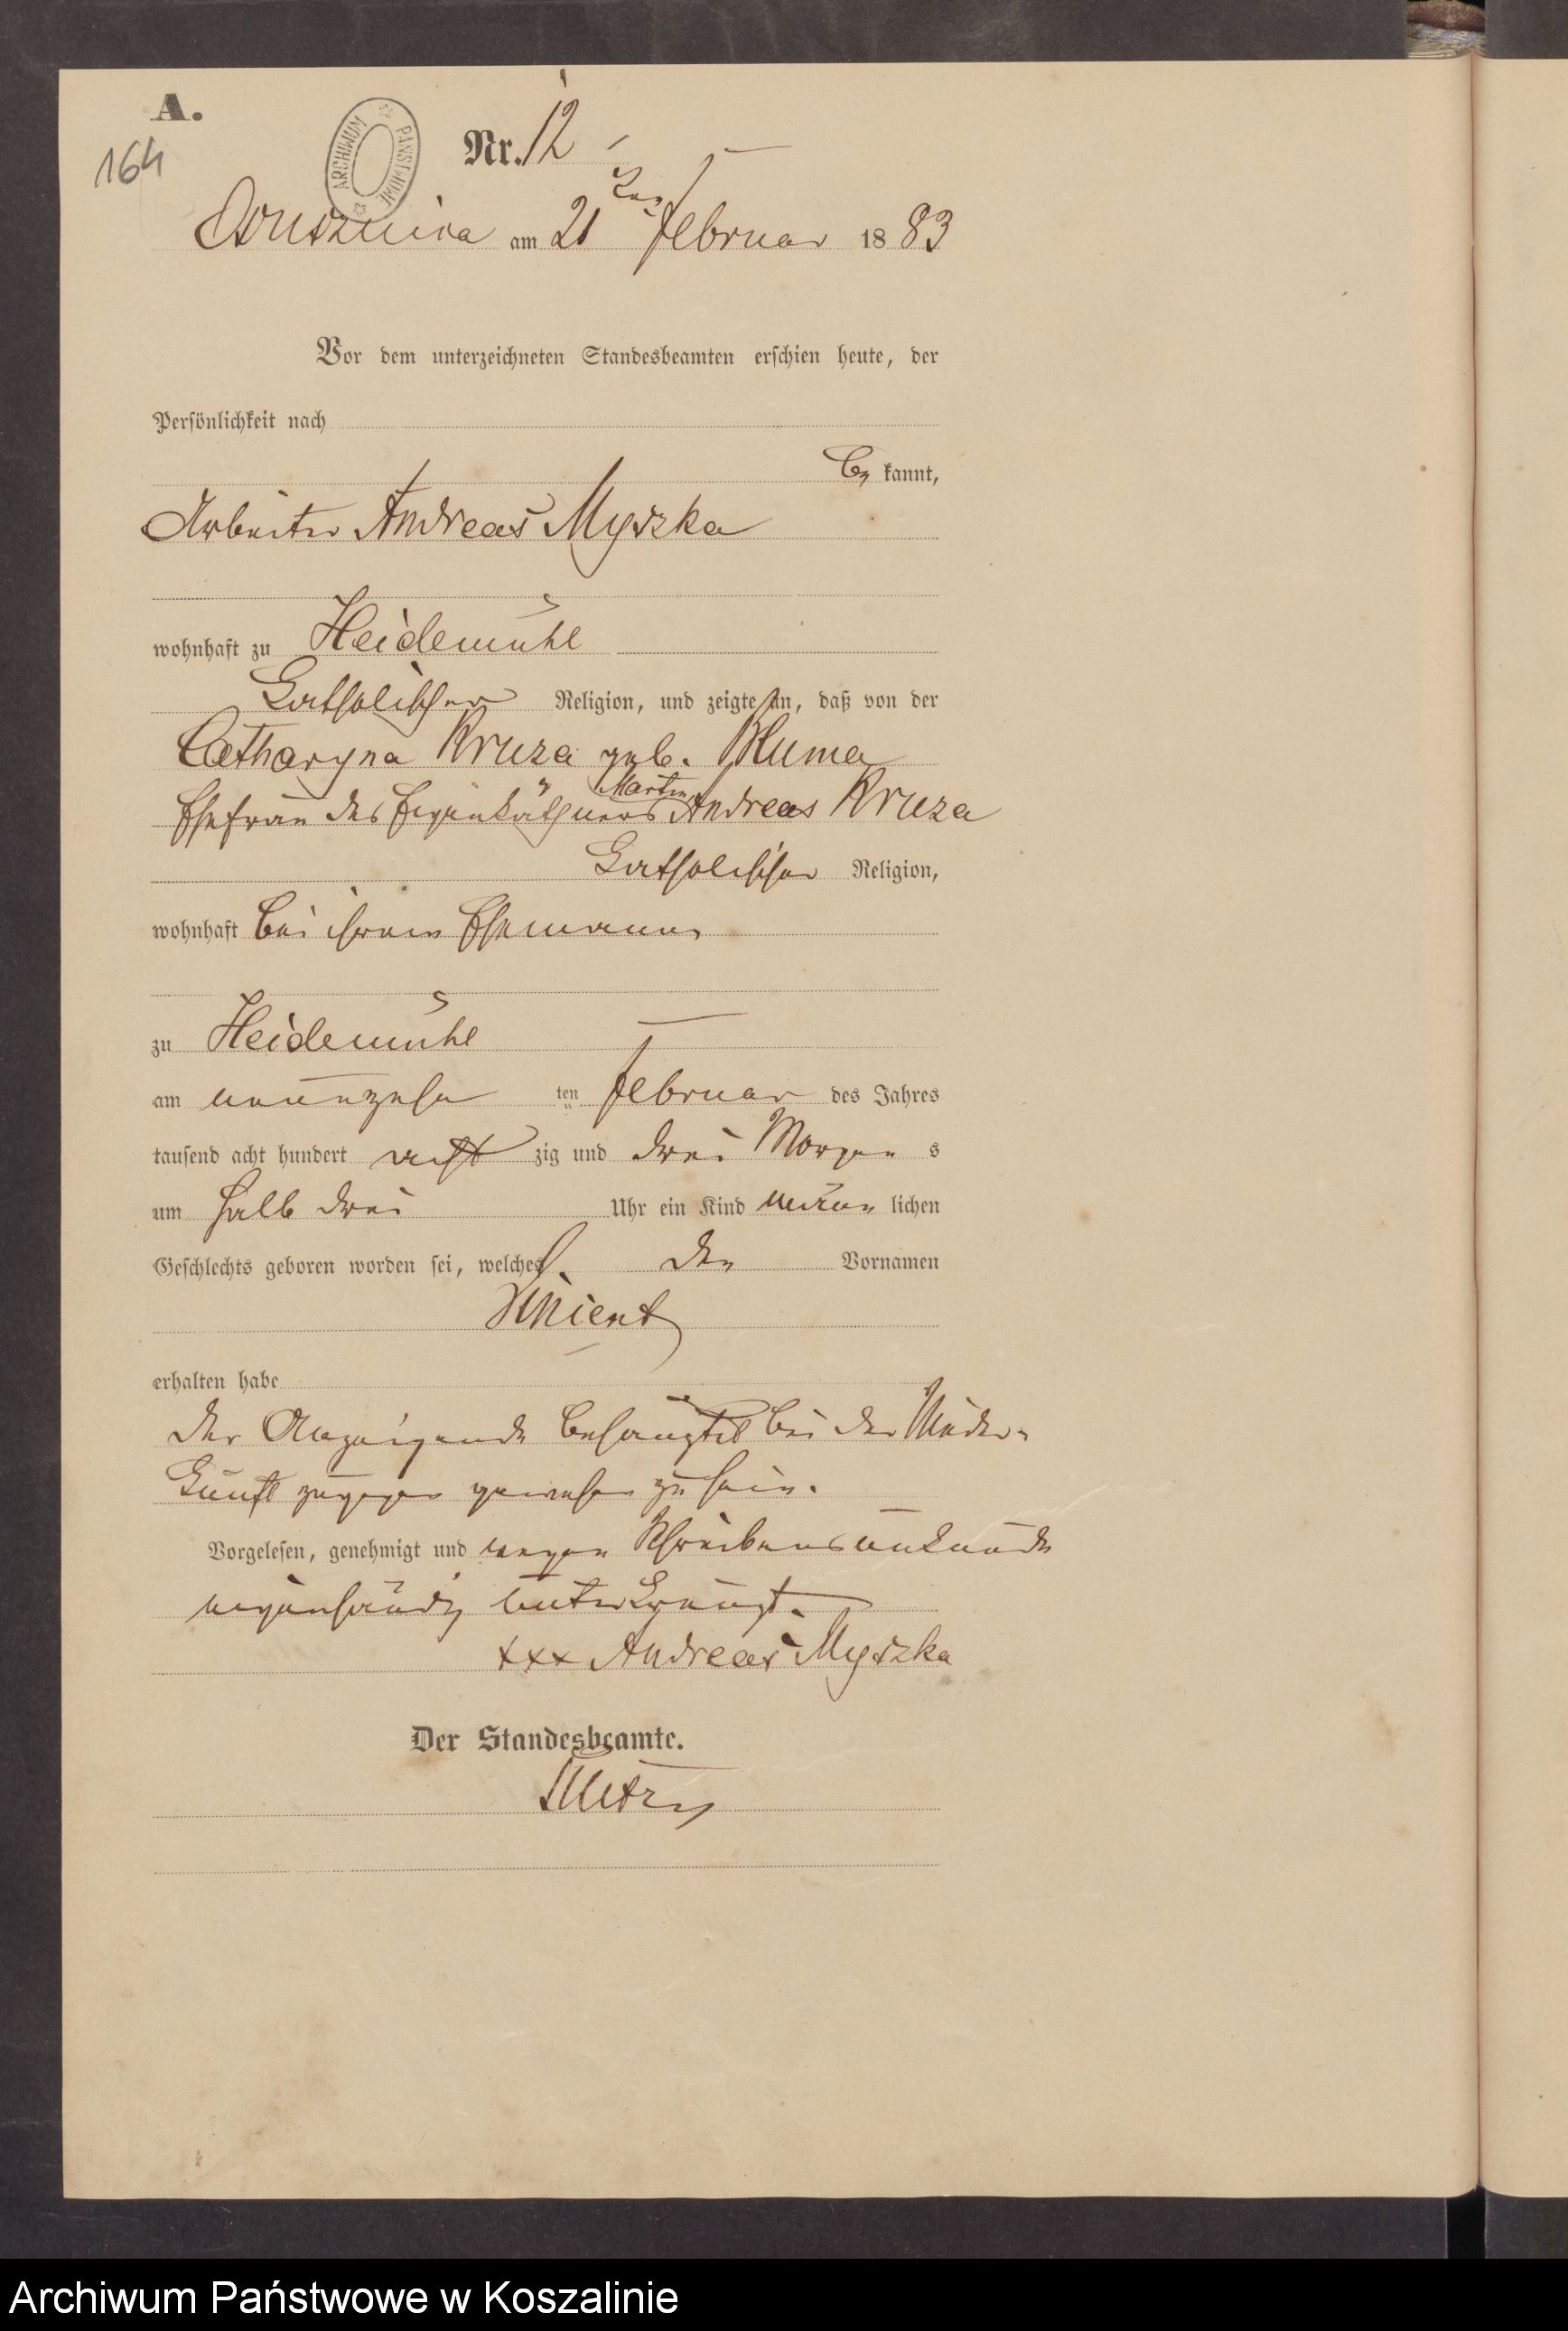 A.
164
ARCHIWUM PAŃSTWOWE
Nr. 12
Ossusznica am 21 ten Februar 1883
Vor dem unterzeichneten Standesbeamten erschien heute, der
Persönlichkeit nach
be kannt,
Arbeiter Andreas Myszka
wohnhaft zu Heidemühl
katholischer Religion, und zeigte an, daß von der
Catharyna Kruza geb. Bluma
Martin
Ehefrau des Eigenkäthners Andreas Kruza
katholischer Religion,
wohnhaft bei ihrem Ehemann
zu Heidemühl
am neunzehn ten Februar des Jahres
tausend acht hundert acht zig und drei Morgen s
um halb drei Uhr ein Kind männ lichen
Geschlechts geboren worden sei, welches den Vornamen
Vincent
erhalten habe
Der Anzeigende behauptet bei der Nieder-
kunft zugegen gewesen zu sein.
Vorgelesen, genehmigt und wegen Schreibensunkunde
eigenhändig unterkreuzt.
xxx Andreas Myszka
Der Standesbeamte.
Archiwum Państwowe w Koszalinie